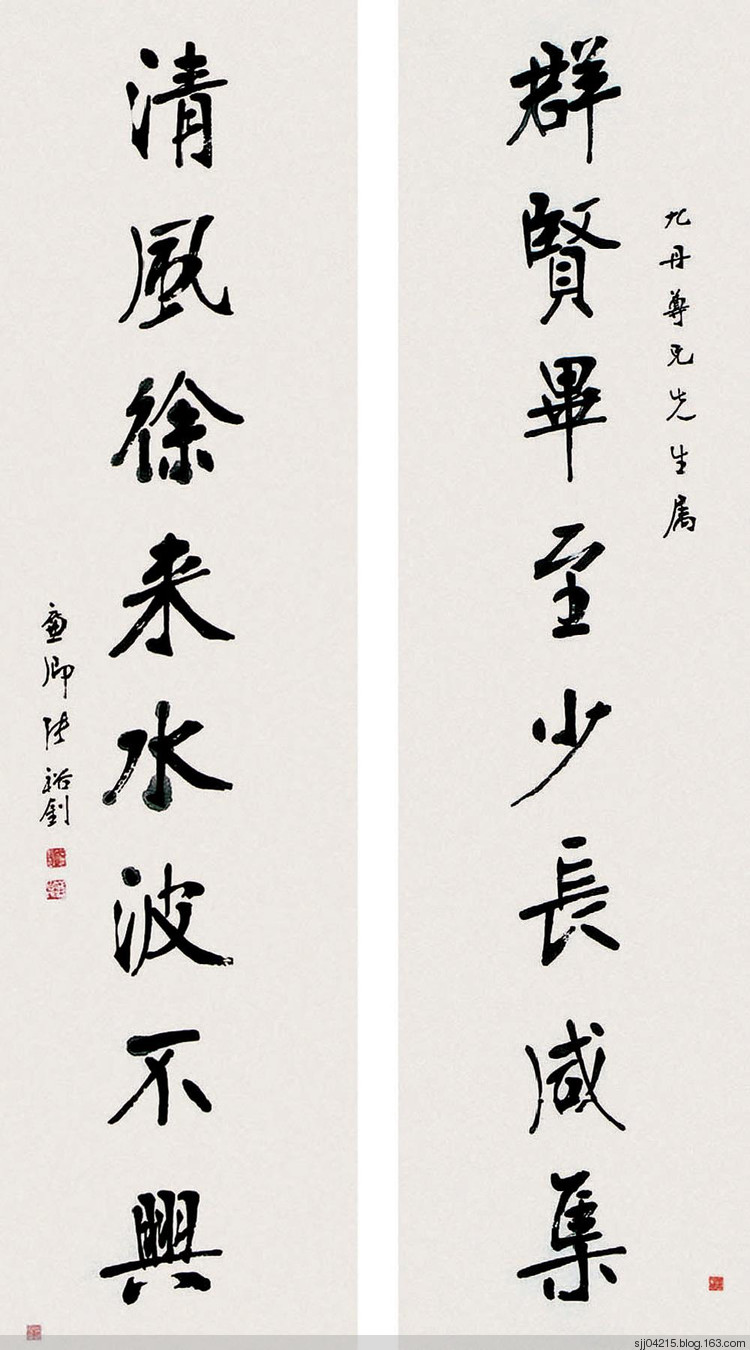 九丹尊兄先生属
群賢畢至少長咸集
清風徐来水波不興
廉卿张裕釗
sjj04215.blog.163.com